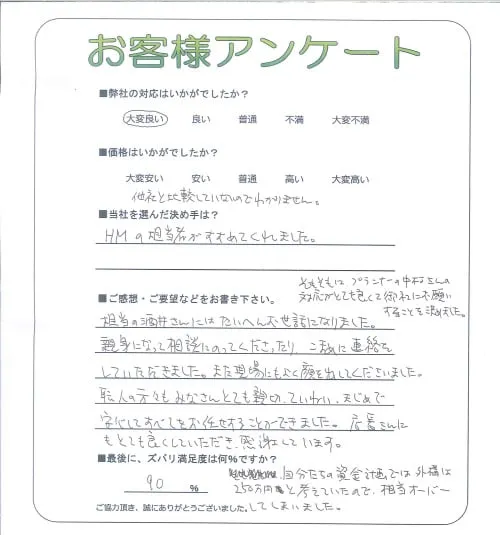 お客様アンケート
■弊社の対応はいかがでしたか？
大変良い 良い 普通 不満 大変不満
■価格はいかがでしたか？
大変安い 安い 普通 高い 大変高い
他社と比較していないのでわかりません。
■当社を選んだ決め手は？
HMの担当者がすすめてくれました。
そもそもは プランナーの中村さんの
対応がとても良くて御社にお願い
することを決めました。
■ご感想・ご要望などをお書き下さい。
担当の酒井さんにはたいへんお世話になりました。
親身になって相談にのってくださったり、こまめに連絡を
していただきました。また現場にもよく顔を出してくださいました。
職人の方々もみなさんとても親切、ていねい、まじめで
安心してすべてをお任せすることができました。店長さんに
もとても良くしていただき、感謝しています。
■最後に、ズバリ満足度は何％ですか？
90 %
自分たちの資金計画では外構は
250万円と考えていたので、相当オーバー
してしまいました。
ご協力頂き、誠にありがとうございました。